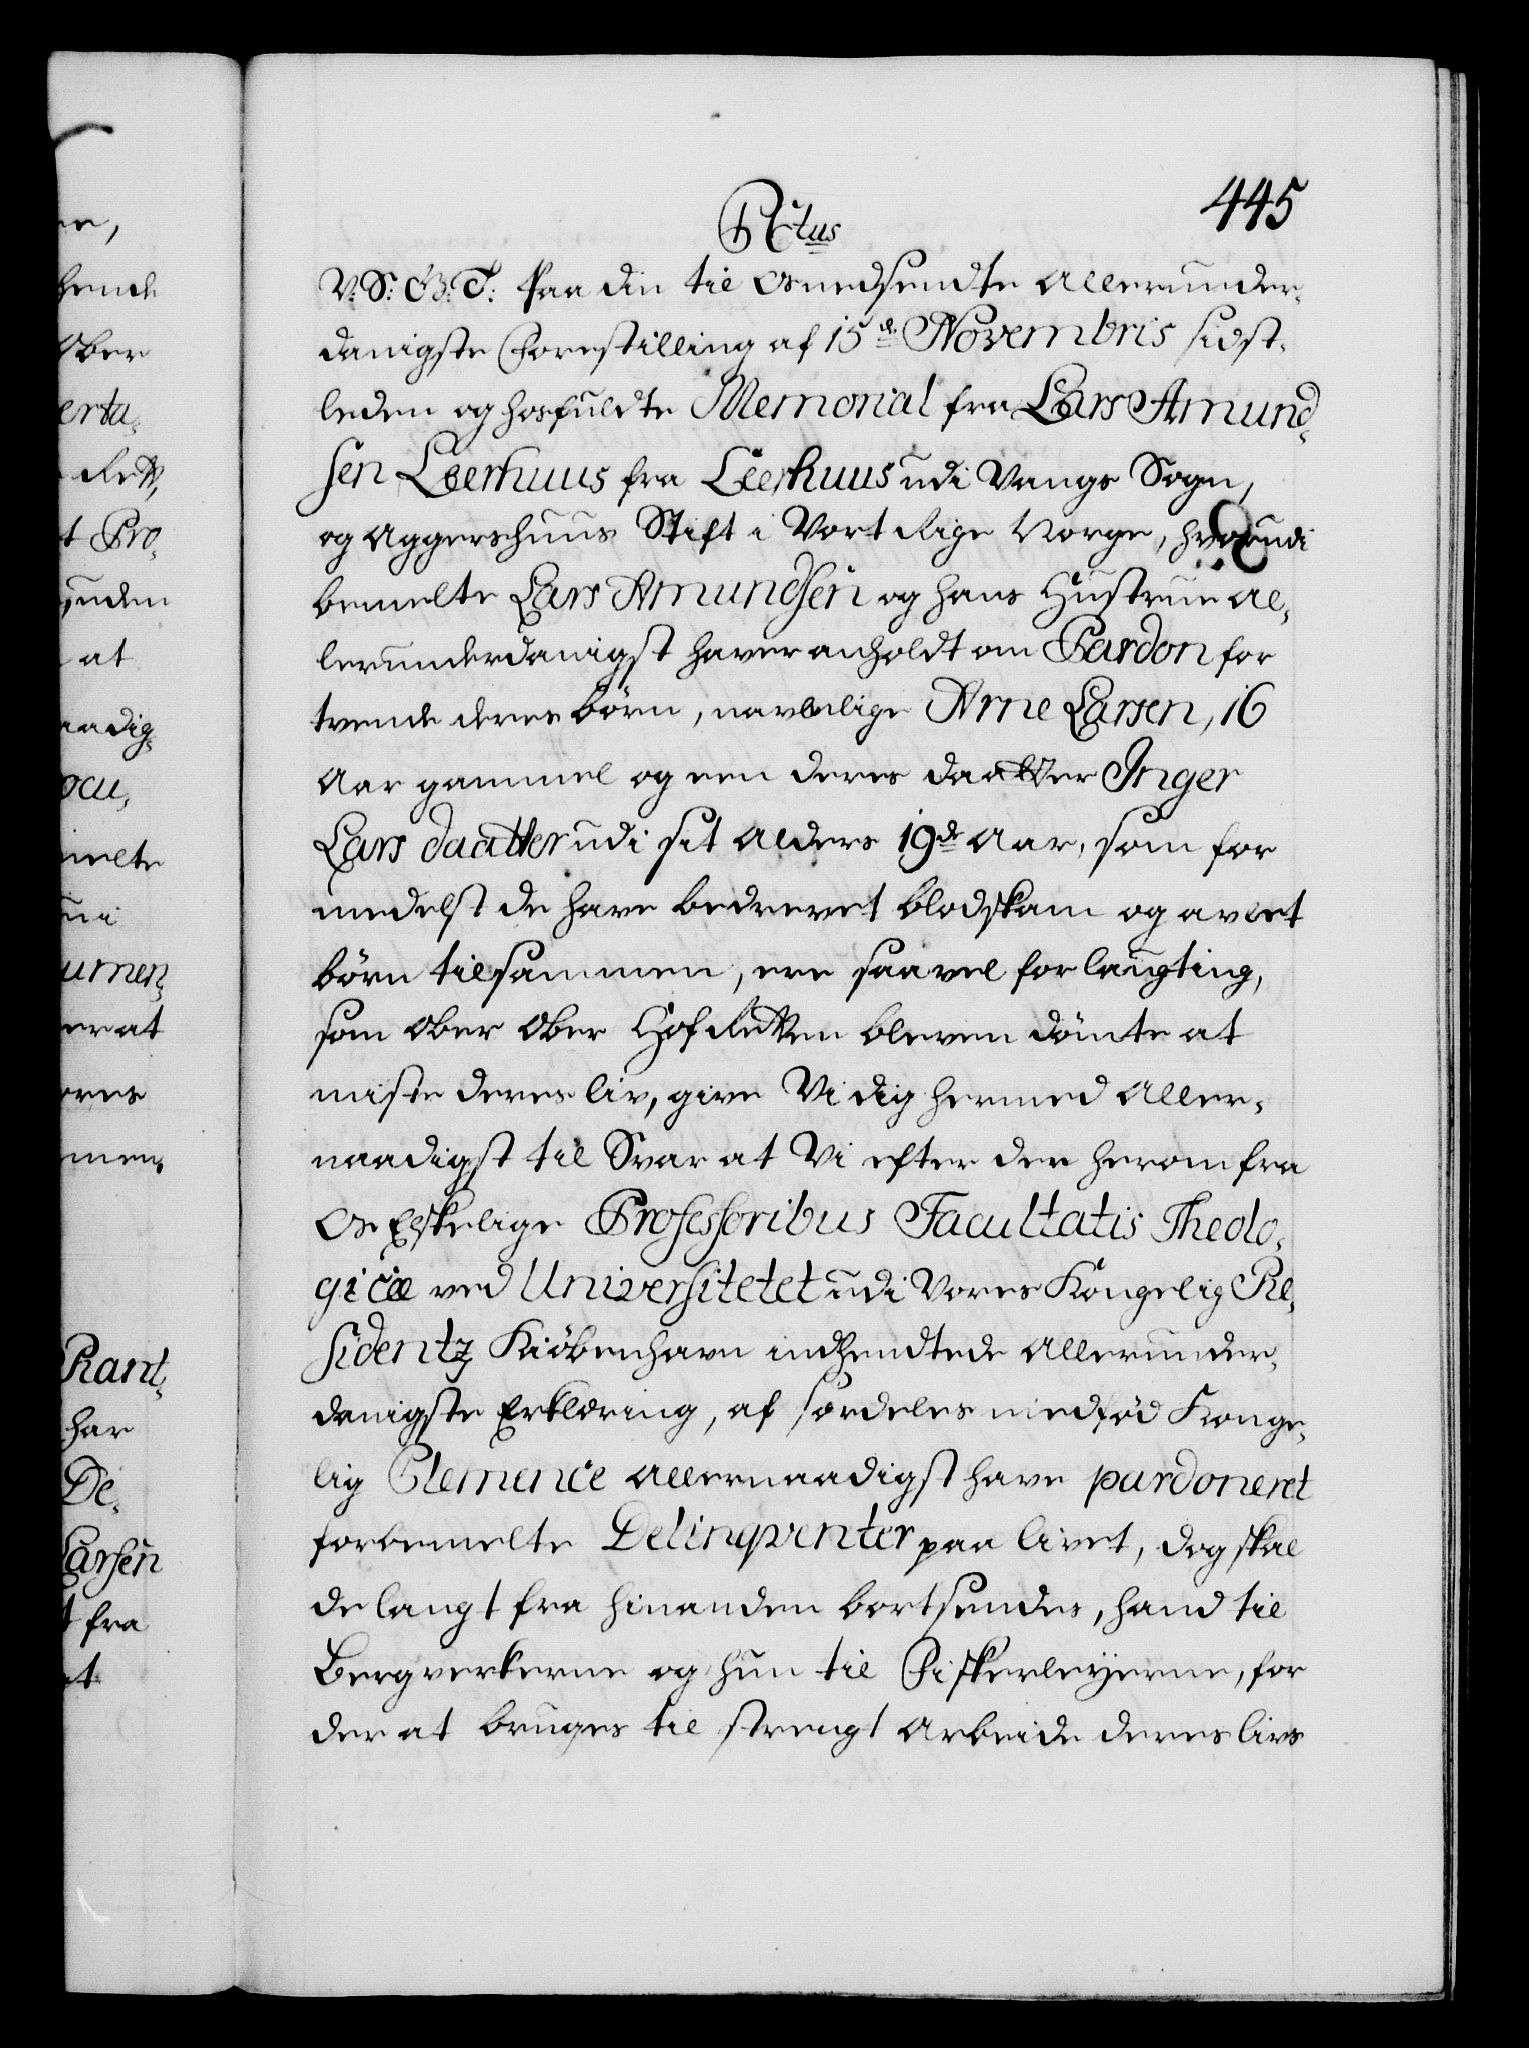 445
Ritus
V: S: G: T: Paa din til Os nedsendte Allerunder-
danigste Forestilling af 15de Novembris sidst-
leden og hosfuldte Memorial fra Lars Amund-
sen Leerhuus fra Leerhuus udi Vangs Sogn,
og Aggershuus Stift i Vort Rige Norge, hvorudi
bemelte Lars Amundsen og hans Hustrue al-
lerunderdanigst haver anholdt om Pardon for
tvende deres børn, navnlige Arne Larsen, 16
Aar gammel og een deres daatter Inger
Lars daatter udi sit Alders 19de Aar, som for
medelst de have bedrevet blodskam og avlet
børn tilsammen, ere saavel for laugting,
som Ober Ober Hof Retten bleven dömte at
miste deres liv, give Vi dig hermed Aller-
naadigst til Svar at Vi efter den herom fra
Os Elskelige Professoribus Facultatis Theolo-
gicæ ved Universitetet udi Vores Kongelig Re-
sidentz Kiöbenhavn indhendtede Allerunder-
danigste Erklæring, af særdeles medfød Konge-
lig Clemence Allernaadigst have pardoneret
forbemelte Delinqventer paa livet, dog skal
de langt fra hinanden bortsendes, hand til
Bergverkerne og hun til Fiskerleyerne, for
der at bruges til strengt Arbeide deres livs
hende
Ober
erta-
Rett,
t Pro-
at
naadig-
ocu-
melte
umen-
er at
ores
men.
Rant-
har
De-
Larsen
t fra